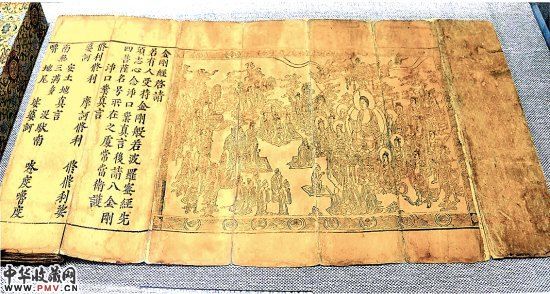 金剛經啓請
若有人受持金剛般若波羅蜜經先
須志心念淨口業真言後請八金剛
四菩薩名号所在之處常當擁護
淨口業真言
脩利脩利 摩訶脩利 脩脩利娑
婆訶
安土地真言
南無三滿多 沒馱南 唵度嚕度
嚕地尾 娑婆訶
中华收藏网
www.PMV.CN